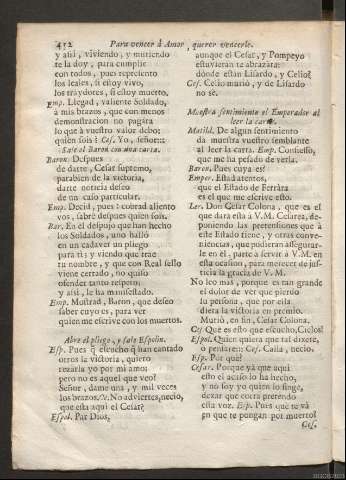 432 Para vencer à Amor, querer vencerle.
y assi, viviendo, y muriendo
te la doy, para cumplir
con todos, pues represento
los leales, si estoy vivo,
los traydores, si estoy muerto.
Emp. Llegad, valiente Soldado,
à mis brazos, que con menos
demonstracion no pagàra
lo que à vuestro valor debo:
quien sois? Ces. Yo, señor::
Sale el Baron con una carta.
Baron. Despues
de darte, Cesar supremo,
parabien de la victoria,
darte noticia deseo
de un caso particular.
Emp. Decid, pues: cobrad aliento
vos, sabrè despues quien sois.
Bar. En el despojo que han hecho
los Soldados, uno hallò
en un cadaver un pliego
para ti; y viendo que trae
tu nombre, y que con Real sello
viene cerrado, no quiso
ofender tanto respeto,
y assi, le ha manifestado.
Emp. Mostrad, Baron, que deseo
saber cuyo es, para ver
quien me escrive con los muertos.
Abre el pliego, y sale Espolin.
Esp. Pues què escucho? què han cantado
otros la victoria, quiero
rezarla yo por mi amo;
pero no es aquel que veo?
Señor, dame una, y mil veces
los brazos. Ces. No adviertes, necio,
que està aqui el Cesar?
Espol. Par Dios,
aunque el Cesar, y Pompeyo
estuvieràn te abrazàra:
dònde estàn Lisardo, y Celio?
Ces. Celio muriò, y de Lisardo
no sè.
Muestra sentimiento el Emperador al
leer la carta.
Matild. De algun sentimiento
da muestra vuestro semblante
al leer la carta. Emp. Confiesso,
que me ha pesado de verla.
Baron. Pues cuya es?
Emper. Està atentos,
que el Estado de Ferràra
es el que me escrive esto.
Lee. Don Cesar Colona, que es el
que darà esta à V.M. Cesarea, de-
poniendo las pretensiones que à
este Estado tiene, y otras conve-
niencias, que pudieran assegurar-
le en el, parte à servir à V.M. en
esta ocasion, para merecer de jus-
ticia la gracia de V. M.
No leo mas, porque es tan grande
el dolor de ver que pierdo
su persona, que por ella
diera la victoria en premio.
Muriò, en fin, Cesar Colona.
Ces. Que es esto que escucho, Cielos!
Espol. Quien quiera que tal dixere,
o pensàre:: Ces. Calla, necio.
Esp. Por què?
Cesar. Porque yà que aqui
esto el acaso lo ha hecho,
y no soy yo quien lo finge,
dexar que corra pretendo
esta voz. Esp. Pues què te và
en que te tengan por muerto?
Ces.